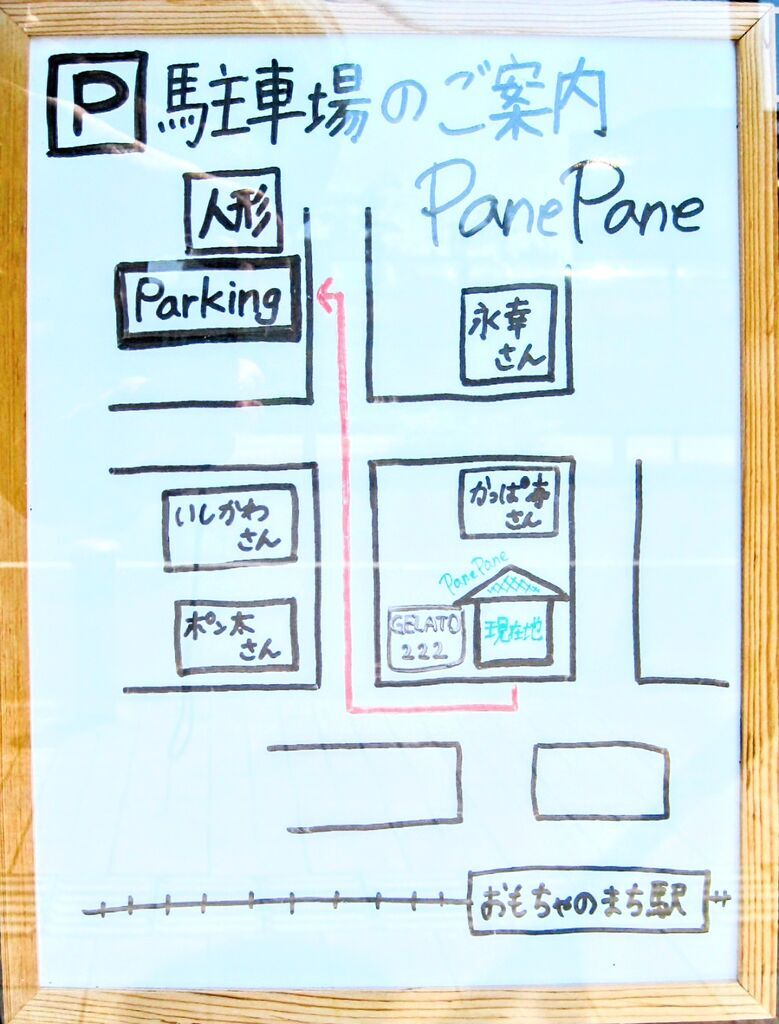 P 駐車場のご案内
PanePane
人形
Parking
永幸
さん
いしかわ
さん
かっぱ寿
さん
PanePane
ポン太
さん
GELATO
222
現在地
おもちゃのまち駅